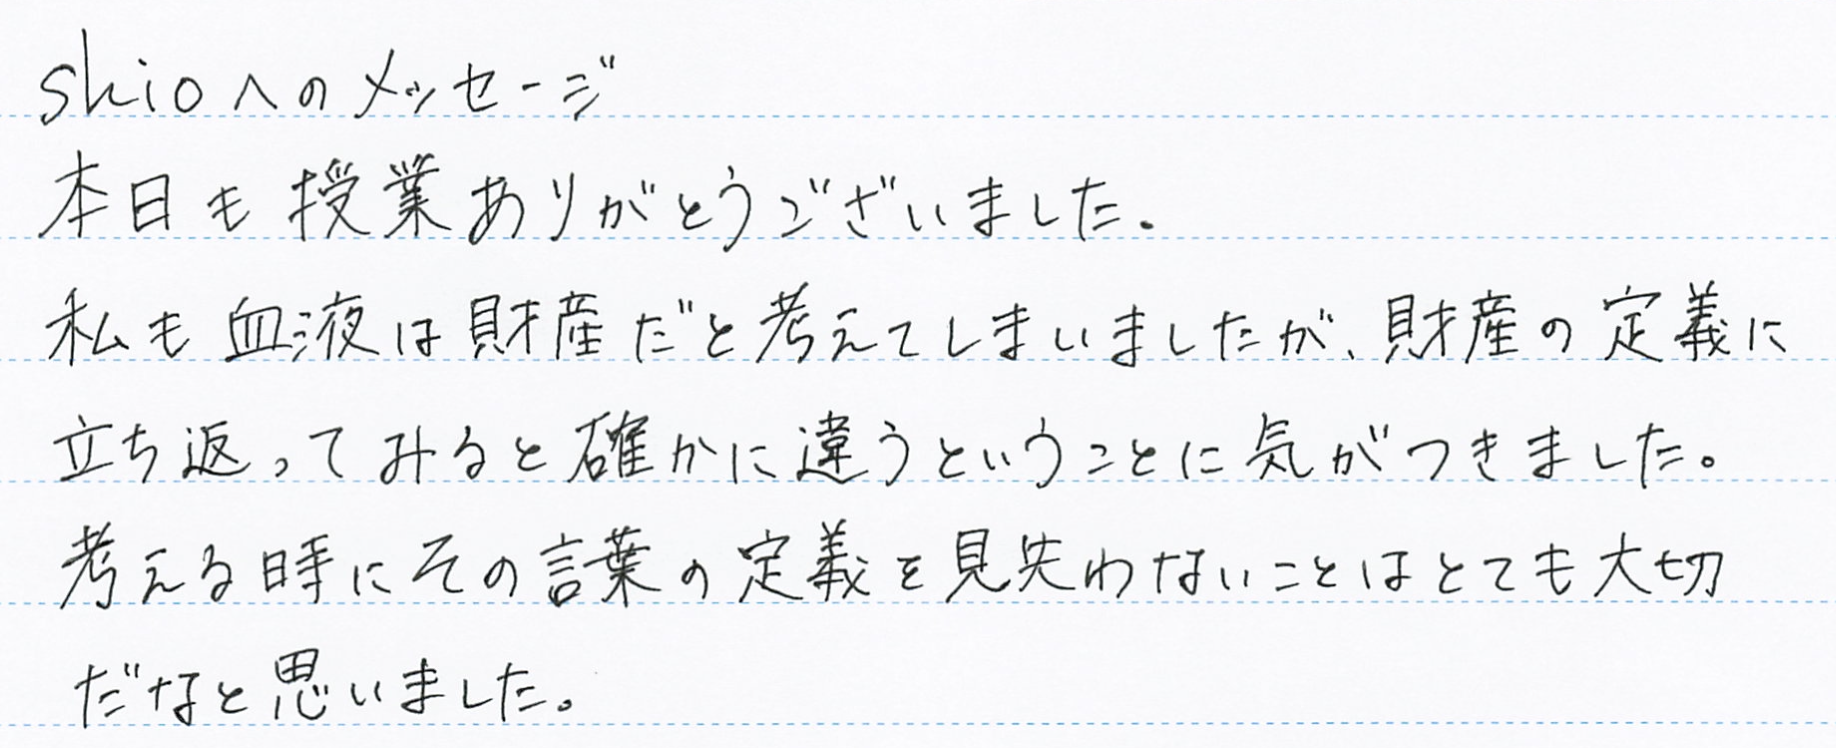 shioへのメッセージ
本日も授業ありがとうございました.
私も血液は財産だと考えてしまいましたが、財産の定義に
立ち返ってみると確かに違うということに気がつきました。
考える時にその言葉の定義を見失わないことはとても大切
だなと思いました。